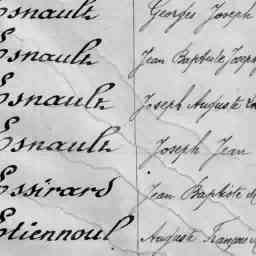 Esnault Georges Joseph
Esnault Jean Baptiste Joseph
Esnault Joseph Auguste
Esnault Joseph Jean
Essirard Jean Baptiste
Etiennoul Auguste François